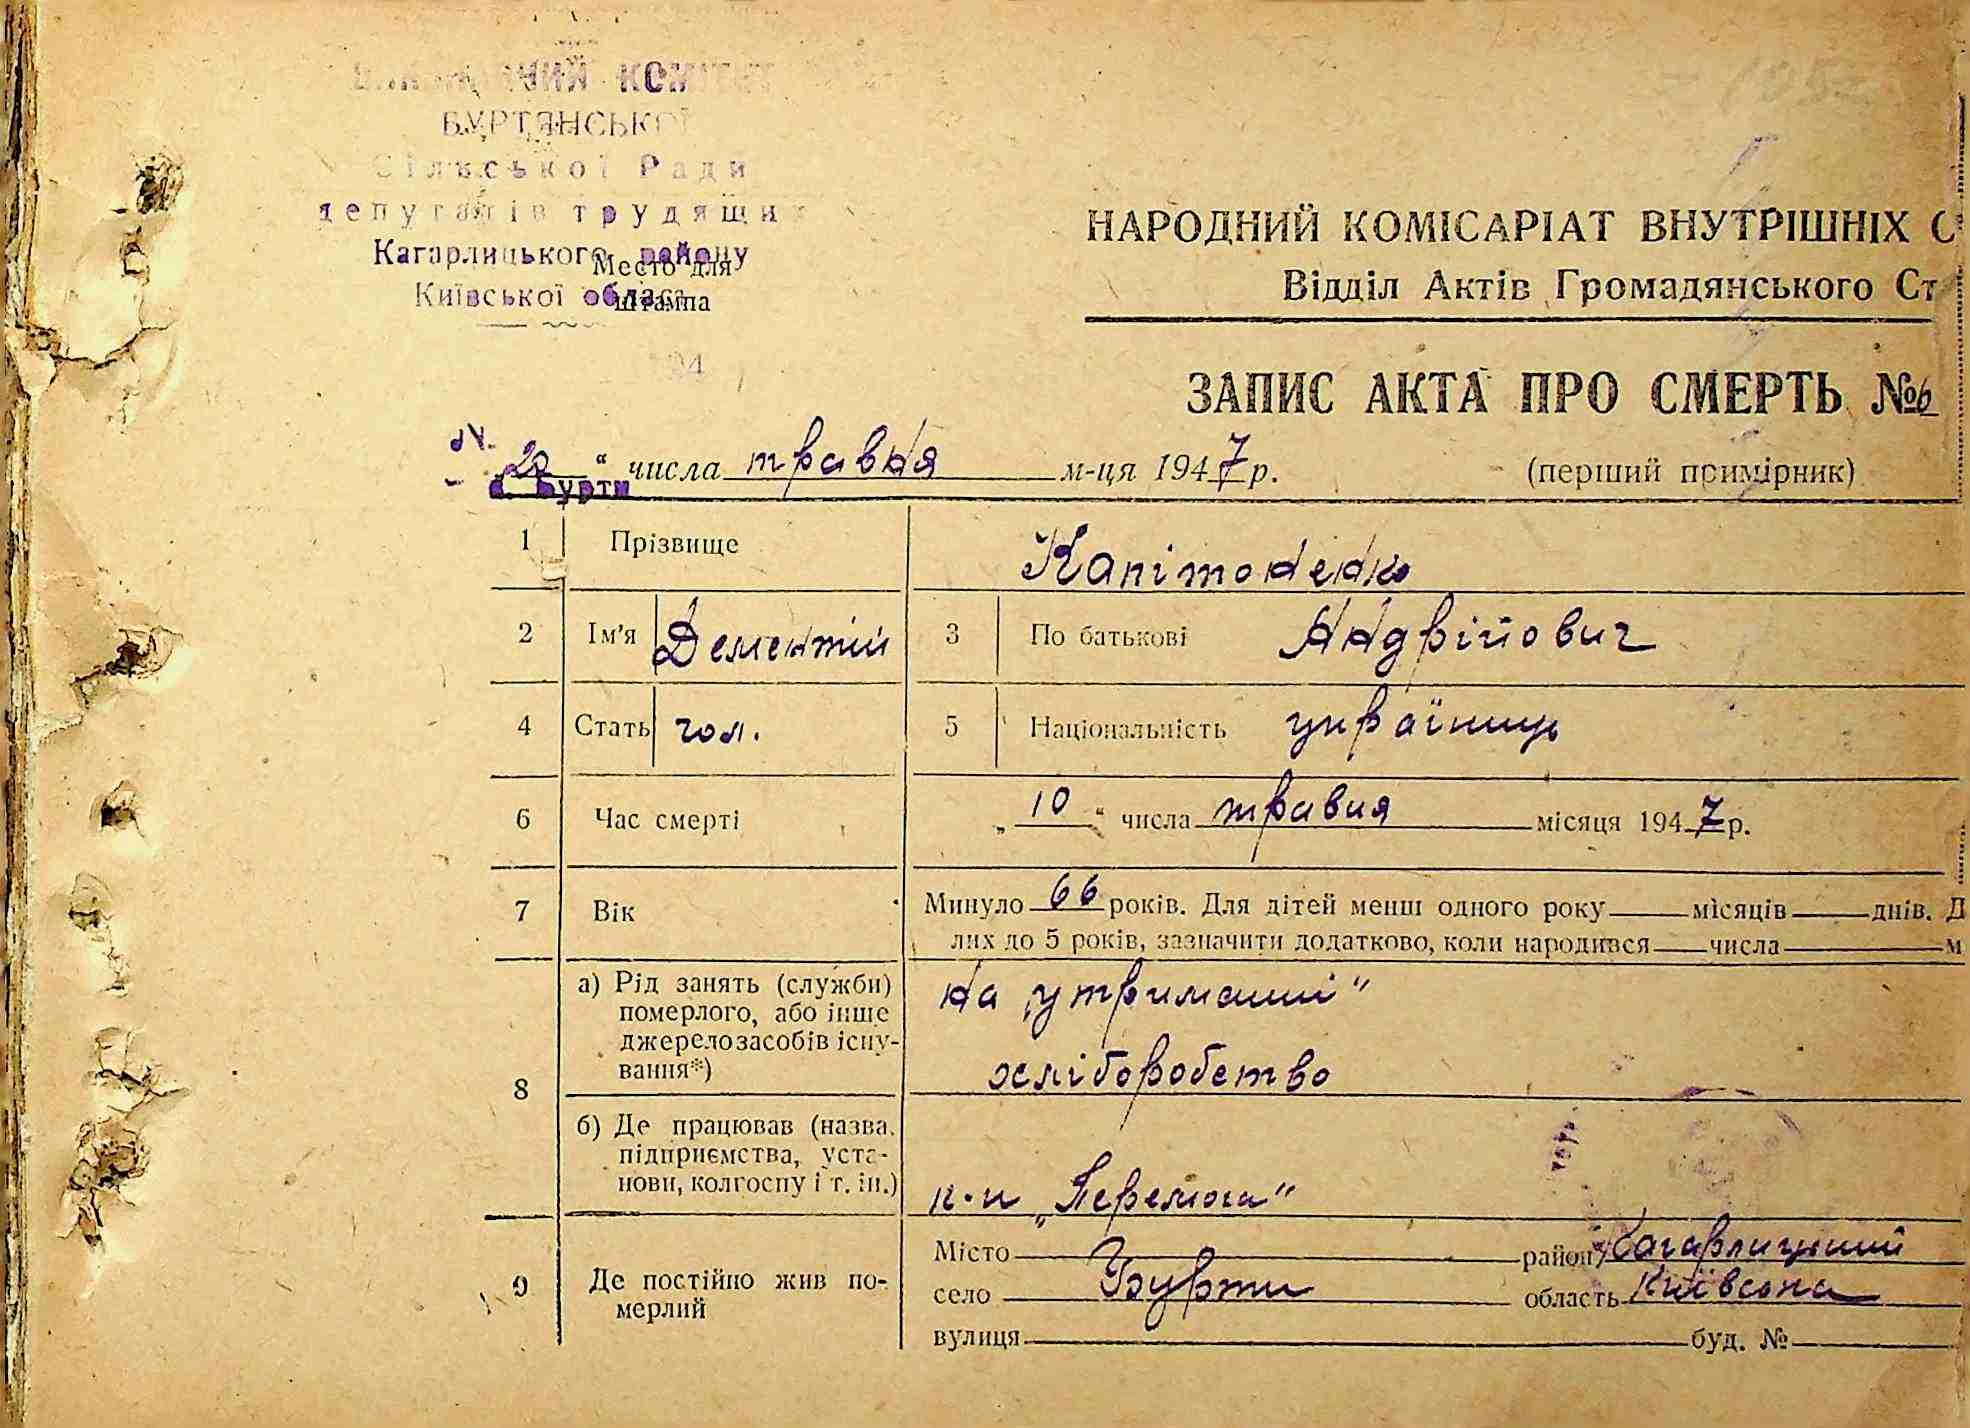 ВИКОНАВЧИЙ КОМІТЕТ
БУРТЯНСЬКОЇ
Сільської Ради
депутатів трудящих
Кагарлицького району
Київської област
Место для
штампа
НАРОДНИЙ КОМІСАРІАТ ВНУТРІШНІХ С
Відділ Актів Громадянського Ст
ЗАПИС АКТА ПРО СМЕРТЬ №6
20 " числа травня м-ця 1947 р. (перший примірник)
с. Бурти
1 Прізвище Капітоненко
2 Ім'я Дементій 3 По батькові Андрійович
4 Стать чол. 5 Національність українець
6 Час смерті „ 10 " числа травня місяця 1947 р.
7 Вік Минуло 66 років. Для дітей менш одного року місяців днів. Д
лих до 5 років, зазначити додатково, коли народився числа м
8 а) Рід занять (служби) померлого, або інше джерело засобів існування*) на „утриманні"
хліборобство
б) Де працював (назва підприємства, установи, колгоспу і т. ін.) к-п „Перемога"
9 Де постійно жив померлий Місто район Кагарлицький
село Бурти область Київська
вулиця буд. №